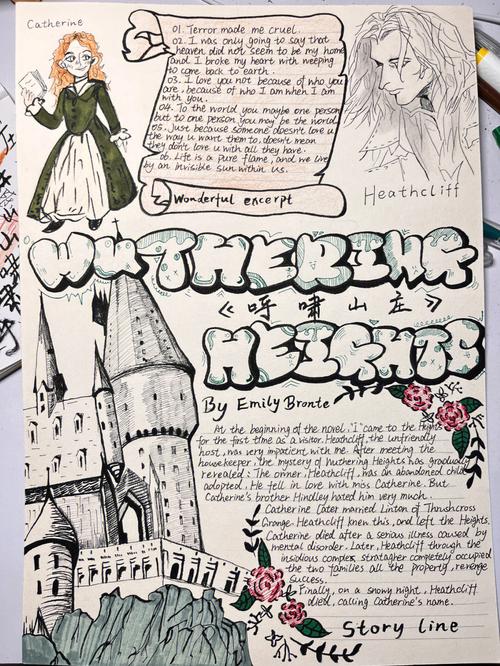 Catherine
01. Terror made me cruel.
02. I was only going to say that
heaven did not seem to be my home
and I broke my heart with weeping
to come back to earth.
03. I love you not because of who you
are, because of who I am when I am
with you.
04. To the world you maybe one person
but to one person you may be the world.
05. Just because someone doesn't love u
the way u want them to, doesn't mean
they don't love u with all they have.
06. Life is a pure flame, and we live
by an invisible sun within us.
Wonderful excerpt
Heathcliff
WUTHERING
《呼啸山庄》
HEIGHTS
By Emily Bronte
At the beginning of the novel, "I" came to the Heights
for the first time as a visitor. Heathcliff, the unfriendly
host, was very impatient with me. After meeting the
housekeeper, the mystery of Wuthering Heights was gradually
revealed: The owner, Heathcliff, was an abandoned child
adopted. He fell in love with miss Catherine. But
Catherine's brother Hindley hated him very much.
Catherine Later married Linton of Thrushcross
Grange. Heathcliff knew this, and left the Heights.
Catherine died after a serious illness caused by
mental disorder. Later, Heathcliff through the
insidious complex stratager completely occupied
the two families all the property, revenge
success.
Finally, on a snowy night, Heathcliff
died, calling Catherine's name.
Story line